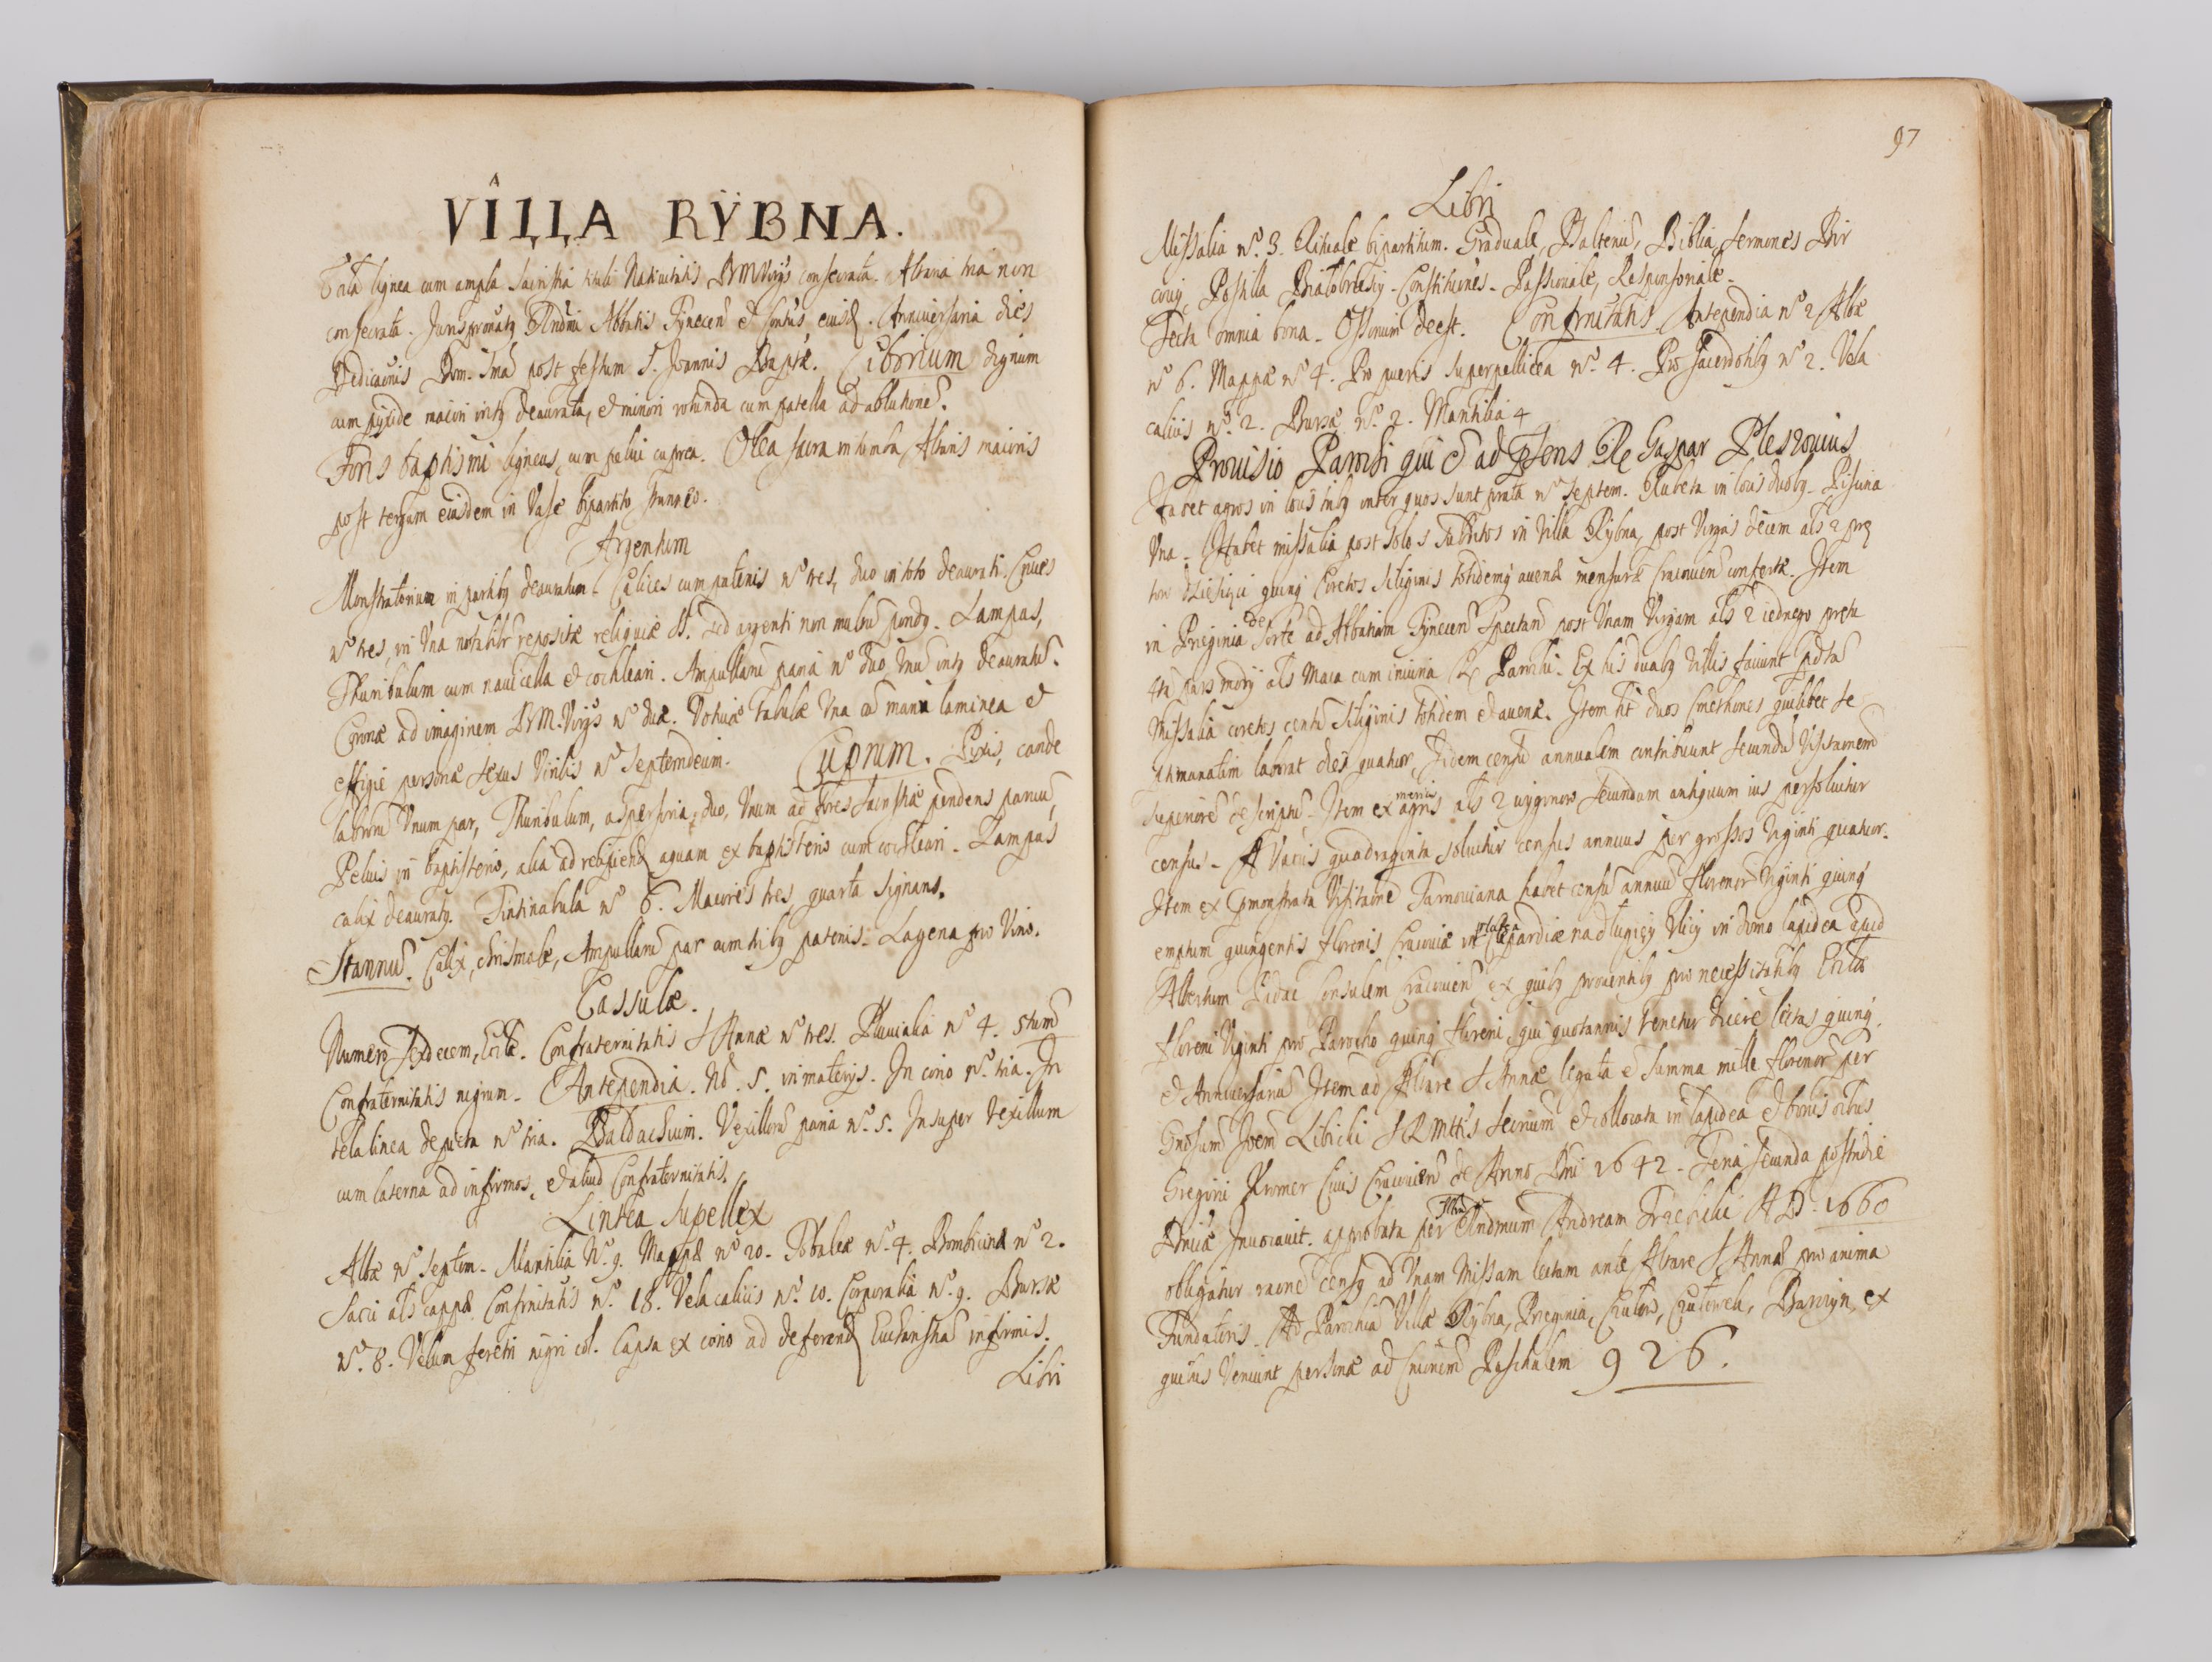 VILLA RŸBNA.
Ecclã lignea cum ampla sacristia tituli Nativitatis BVMVirgs consecrata. Altaria tria non
consecrata. Juris pronatg Rndmi Abbatis Tynecen̄ et Contus eiusd. Anniversaria dies
Dedicãonis Dom. 3na post festum S. Joannis Baptæ. Ciborium dignum
cum pyxide maiori intg deaurata, et minori rotunda cum patella ad ablutionē.
Fons baptismi ligneus, cum pelui cuprea. Olea sacra in tumba Altaris maioris
post tergum eiusdem in Vase bipartito stanneo.
Argentum
Monstratorium in partibg deauratum. Calices cum patenis No tres, duo in toto deaurati. Cruces
No tres, in Una notabilr repositæ reliquiæ SS. sed argenti non multū pondg. Lampas,
Thuribulum cum nauicella et cochleari. Ampullarū paria No duo, Unū intg deauratū.
Coronæ ad imaginem BVM.Virgs No duæ. Votiuæ tabulæ Una cū manu laminea et
effigie personæ sexus Virilis No Septemdecim. Cuprum. Pixis, cande
labrorū Unum par, Thuribulum, aspersoria duo, Unum ad fores sacristiæ pendens paruū,
Peluis in baptisterio, alia ad recipiend aquam ex baptisterio cum cochleari. Lampas
calix deauratg. Tintinabula No 6. Maiores tres, quarta signans.
Stannū. Calix, chrismale, Ampullarū par cum tribg patenis. Lagena pro Vino.
Cassulæ.
Numero sexdecem, Ecclæ. Confraternitatis S Annæ No tres. Pluvialia No 4. 5tum
Confraternitatis nigrum. Antependia. No. 5. in materijs. In corio No. tria. In
tela linea depicta No tria. Baldachium. Vexillorū paria No. 5. Insuper Vexillum
cum laterna ad infirmos, et aliud Confraternitatis.
Lintea Supellex
Albæ No Septem. Mantilia No. 9. Mappæ No 20. Tobaleæ No. 4. Bombicinæ No 2.
Sacci als cappæ Confrnitatis No. 18. Vela calicis No. 10. Corporalia No. 9. Bursæ
No. 8. Velum feretri nigri col. Capsa ex corio ad deferend Eucharistiā infirmis.
Libri
97
Libri
Missalia No. 3. Rituale bipartitum. Graduale, Psalteriū, Biblia, Sermones Bir
covij, Postilla Białobrzesij. Constitūones. Passionale, Responsoriale.
Tecta omnia bona. Ossorium deest. Confrnitatis Antependia No 2 Albæ
No 6. Mappæ No 4. Pro pueris superpellicea No. 4. Pro Sacerdotibg No 2. Vela
calicis No. 2. Bursæ No. 2. Mantilia 4
Provisio Parochi qui ē ad Psens Rs Gaspar Pleszovius
Habet agros in locis tribg inter quos sunt prata No Septem. Rubeta in locis duobg. Piscina
Una. Habet missalia post solos subditos in Villa Rybna, post Virgas decem als 2 prę
tow dziesięci quinq coretos siliginis totidemq auenæ mensuræ Cracouien̄ confertæ. Item
in Preginia de sorte ad Abbatiam Tynecen̄ Spectan̄ post Unam Virgam als 2 iednego pręta
4ta pars modij als Maca cum iniuria Rs Parochi. Ex his duabg Villis faciunt pdta
Missalia coretos centū siliginis totidem et auenæ. Item ht duos Cmethones quilibet se
ptimanatim laborat dies quatuor, Iidem censū annualem contribuunt secundū Visitãonem
superiorē descriptū. Item ex meris agris als 2 uygonow secundum antiquum ius persoluitur
census. A Vaccis quadraginta soluitur census annuus per grossos Viginti quatuor.
Item ex Gmonstrata Visitãone Tarnouiana habet censū annuū florenorū Viginti quinq
emptum quingentis florenis Cracoviæ in platea Clepardiæ na długiey Ulicy in domo lapidea apud
Albertum Zidac Consulem Cracovien̄ ex quibg prouentibg pro necessitatibg Ecclæ
floreni Viginti pro Parocho quinq floreni, qui quotannis tenetur dicere lectas quinq
et Anniversariū. Item ad Altare S Annæ legata ē summa mille florenorū per
Gnosum Joem Libicki S R Mttis secrium et collocata in lapidea et bonis oibus
Gregorii Kromer Civis Cracovien̄ de Anno Dni 1642. Feria secunda postridie
Dnicæ Invocavit. approbata per Illm Rndmum Andream Trzebicki A D. 1660
obligatur raone censg ad Unam Missam lectam ante Altare S Annæ pro anima
Fundatoris. Ad Parochiā Villæ Rybna, Preginia, Czułow, Czułowek, Barczyn, ex
quibus Veniunt personæ ad Cõionem Paschalem 926.